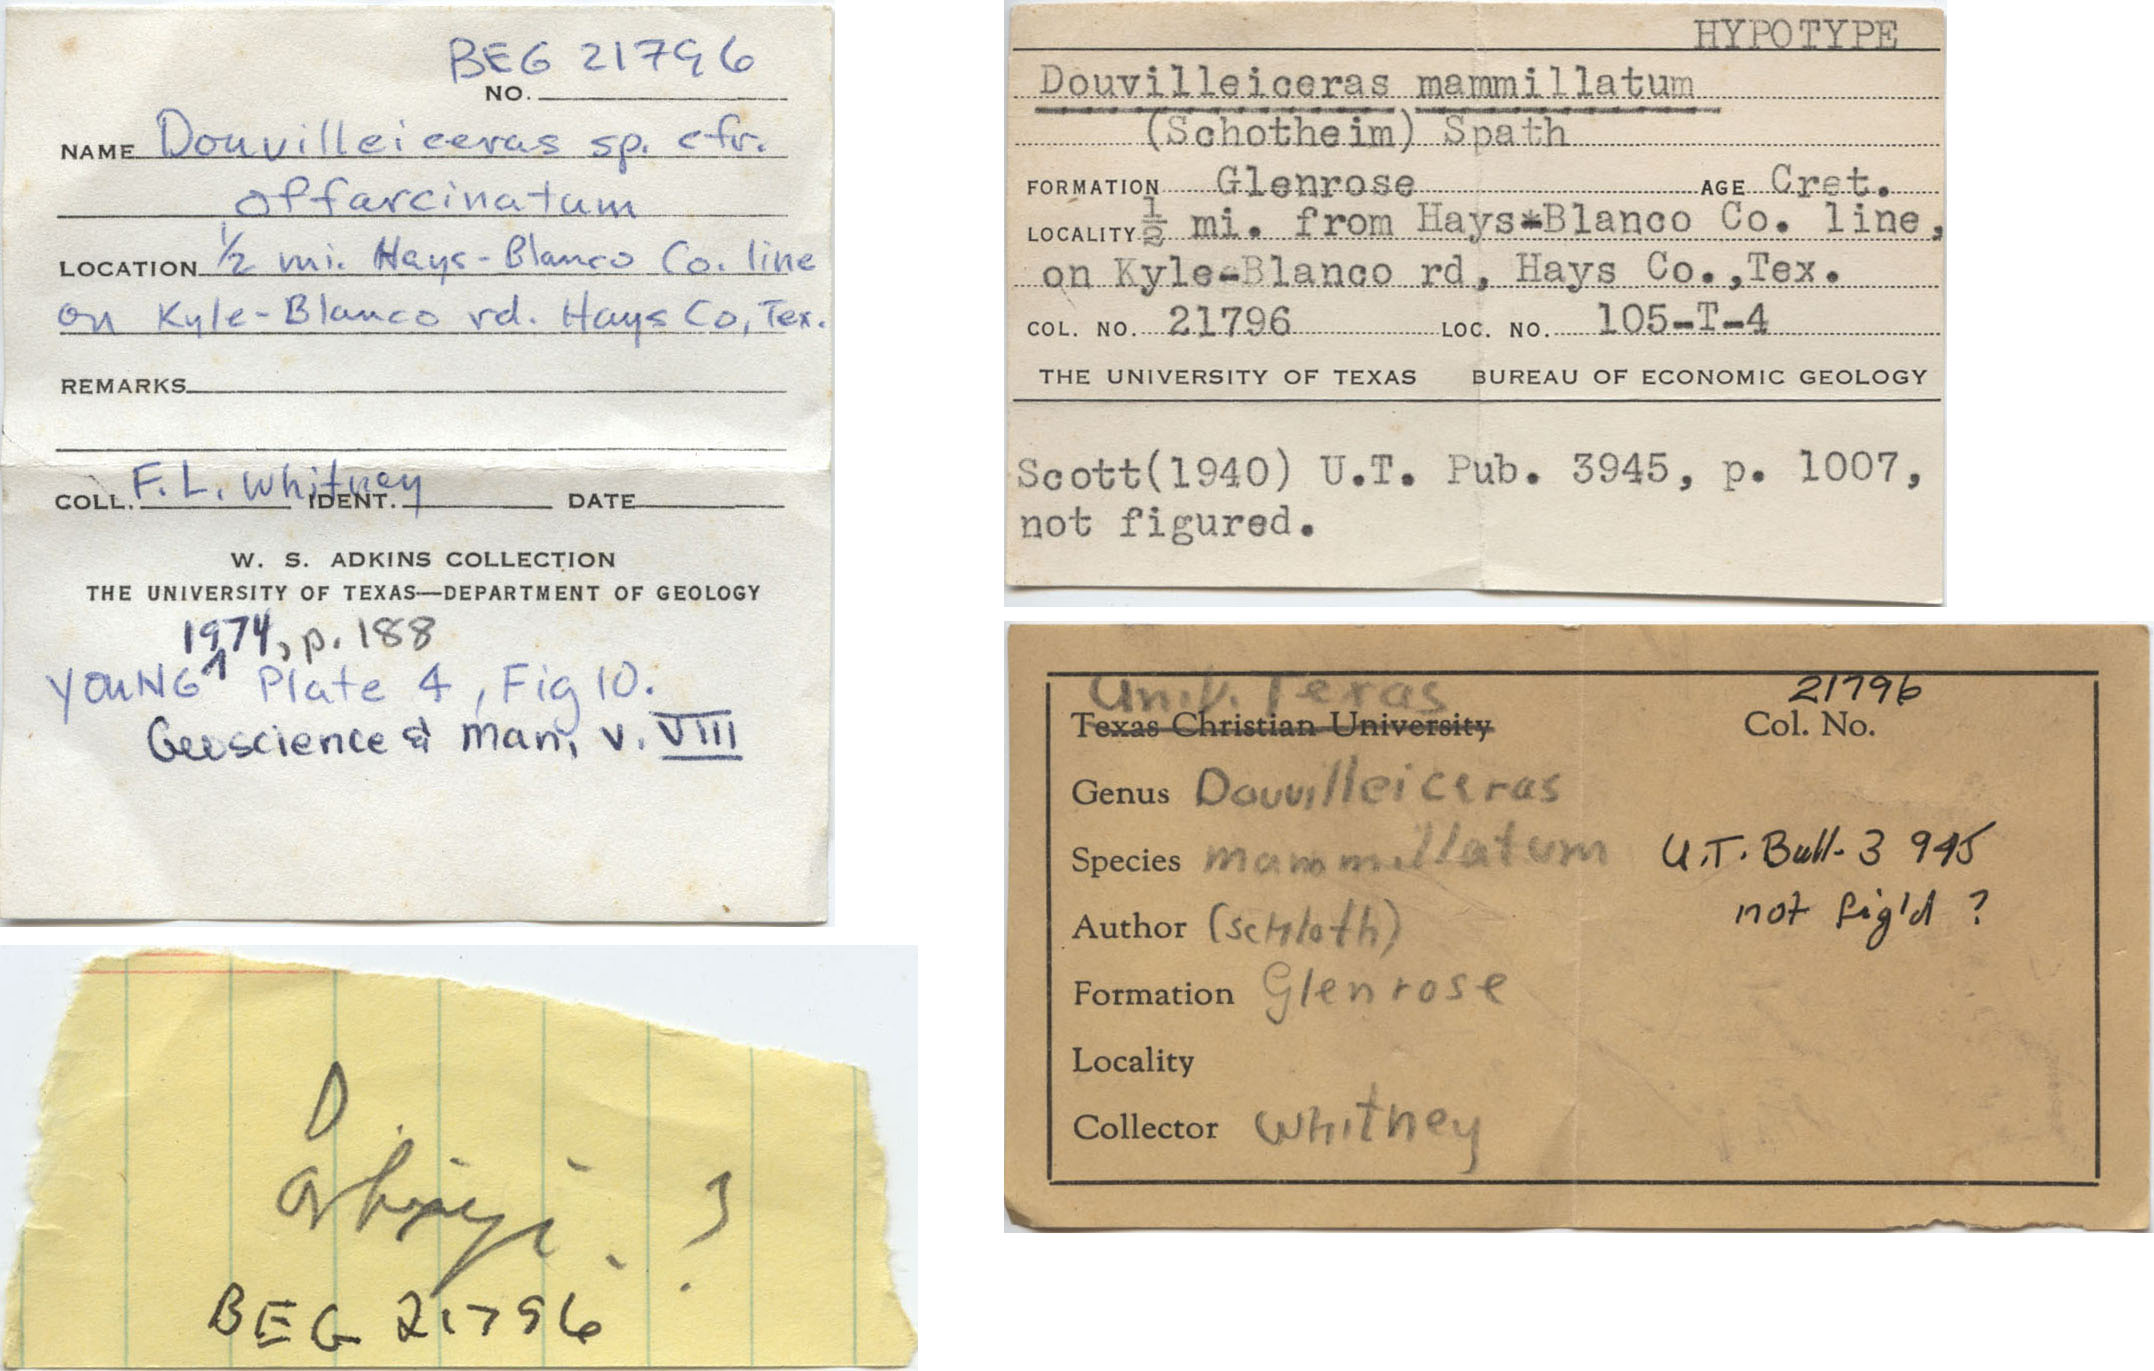 BEG 21796
NO.
NAME Douvilleiceras sp. cfr.
offarcinatum
LOCATION 1/2 mi. Hays-Blanco Co. line
on Kyle-Blanco rd. Hays Co, Tex.
REMARKS
COLL. F. L. Whitney IDENT. DATE
W. S. ADKINS COLLECTION
THE UNIVERSITY OF TEXAS—DEPARTMENT OF GEOLOGY
1974, p. 188
YOUNG Plate 4, Fig 10.
Geoscience & Man, v. VIII
HYPOTYPE
Douvilleiceras mammillatum
(Schotheim) Spath
FORMATION Glenrose AGE Cret.
LOCALITY 1/2 mi. from Hays-Blanco Co. line,
on Kyle-Blanco rd, Hays Co.,Tex.
COL. NO. 21796 LOC. NO. 105-T-4
THE UNIVERSITY OF TEXAS BUREAU OF ECONOMIC GEOLOGY
Scott(1940) U.T. Pub. 3945, p. 1007,
not figured.
Univ. Texas 21796
Texas Christian University Col. No.
Genus Douvilleiceras
Species mammillatum U.T. Bull. 3945
not fig'd ?
Author (Schloth)
Formation Glenrose
Locality
Collector Whitney
D
?
BEG 21796